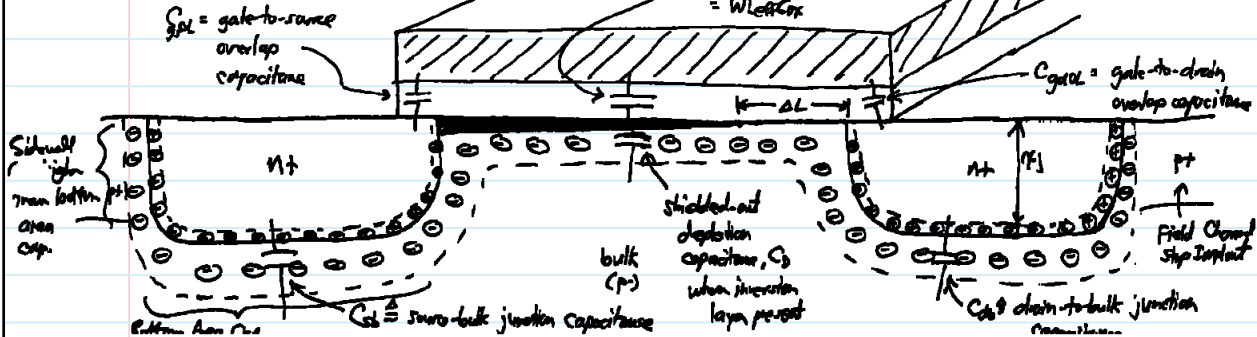 CgsOL = gate-to-source
overlap
capacitance
= WLeffCox
CgdOL = gate-to-drain
overlap capacitance
ΔL
Sidewall
than bottom
area
cap.
p+
n+
n+
xj
p+
Field Channel
Stop Implant
shielded-out
depletion
capacitance, CD
when inversion
layer present
bulk
(p-)
Csb ≜ source-bulk junction capacitance
Cdb ≜ drain-to-bulk junction
capacitance
Bottom Area Cap